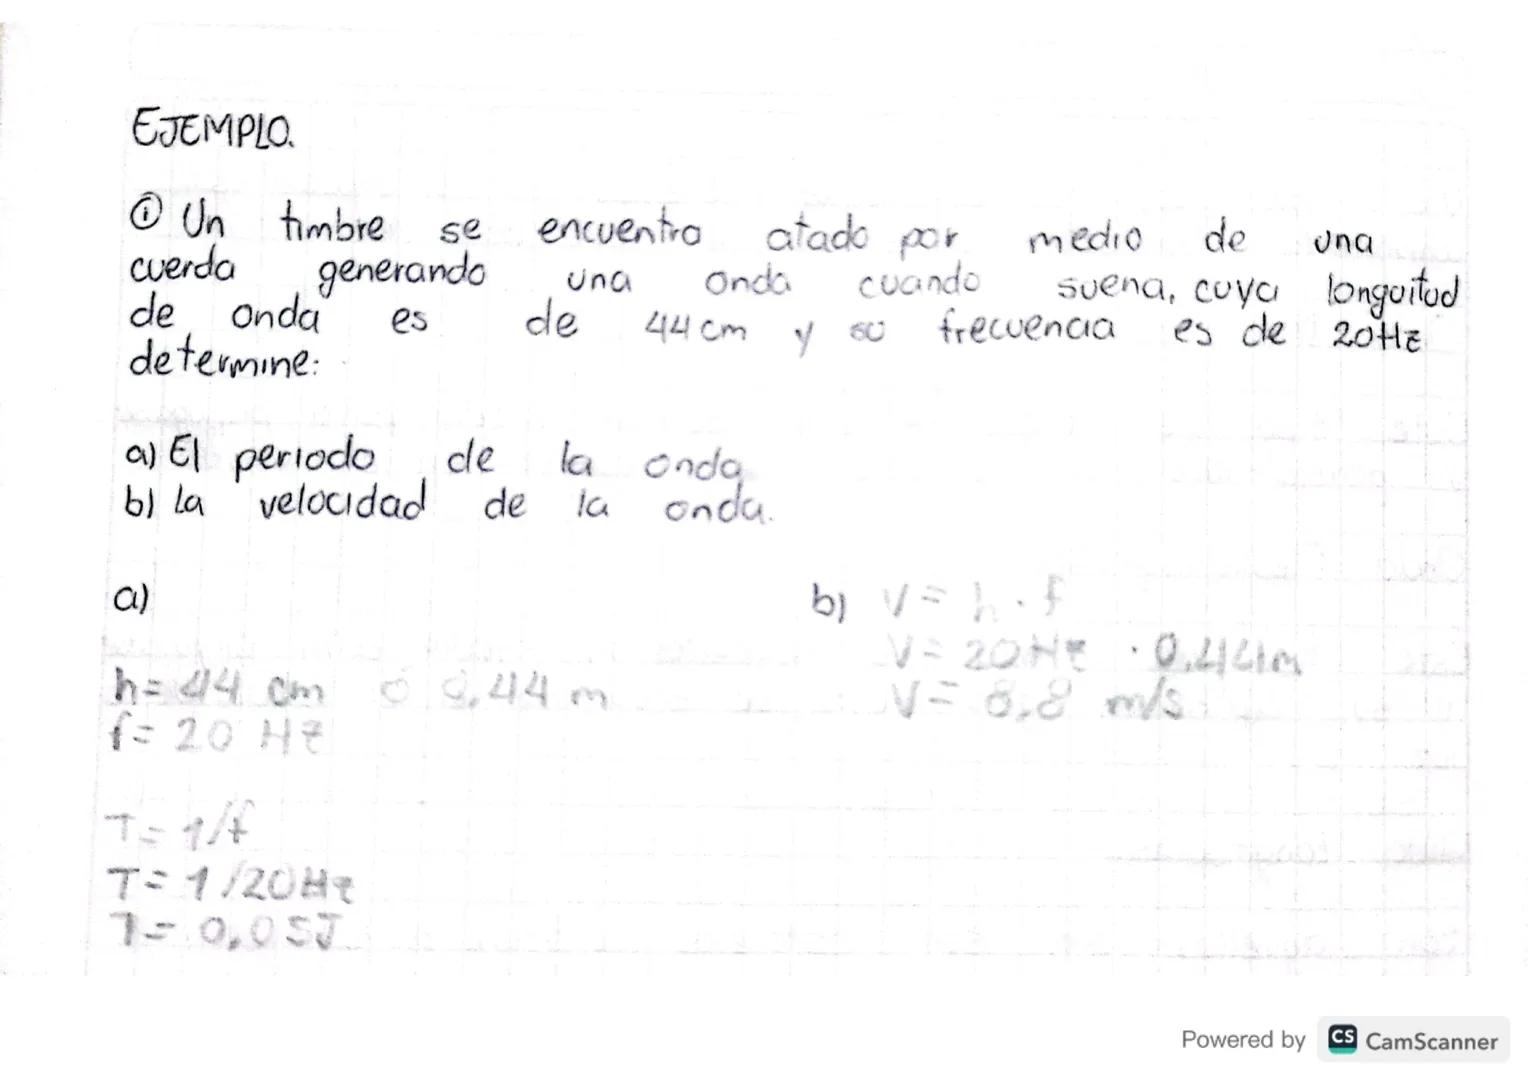 EJEMPLO.
① Un timbre se encuentra atado por medio de una
cuerda generando una onda cuando suena, cuya longuitud
de onda es de 44cm y su frecuencia es de 20Hz
determine:
a) El periodo de la onda
b) la velocidad de la onda.
a)
h= 44 cm o 0.44 m
f= 20 Hz
T= 1/f
T= 1/20Hz
T= 0,05J
b) V= h . f
V= 20Hz . 0,44m
V= 8,8 m/s
Powered by CS CamScanner